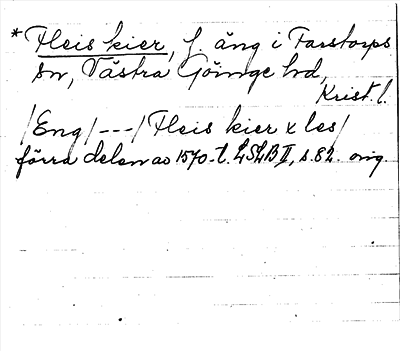 *Fleis kier, f. äng i Farstorps
sn, Västra Göinge hd,
Krist. l.
/Eng/---/Fleis kier x les/
förra delen av 1570-t. LSLB II, s. 82. orig.